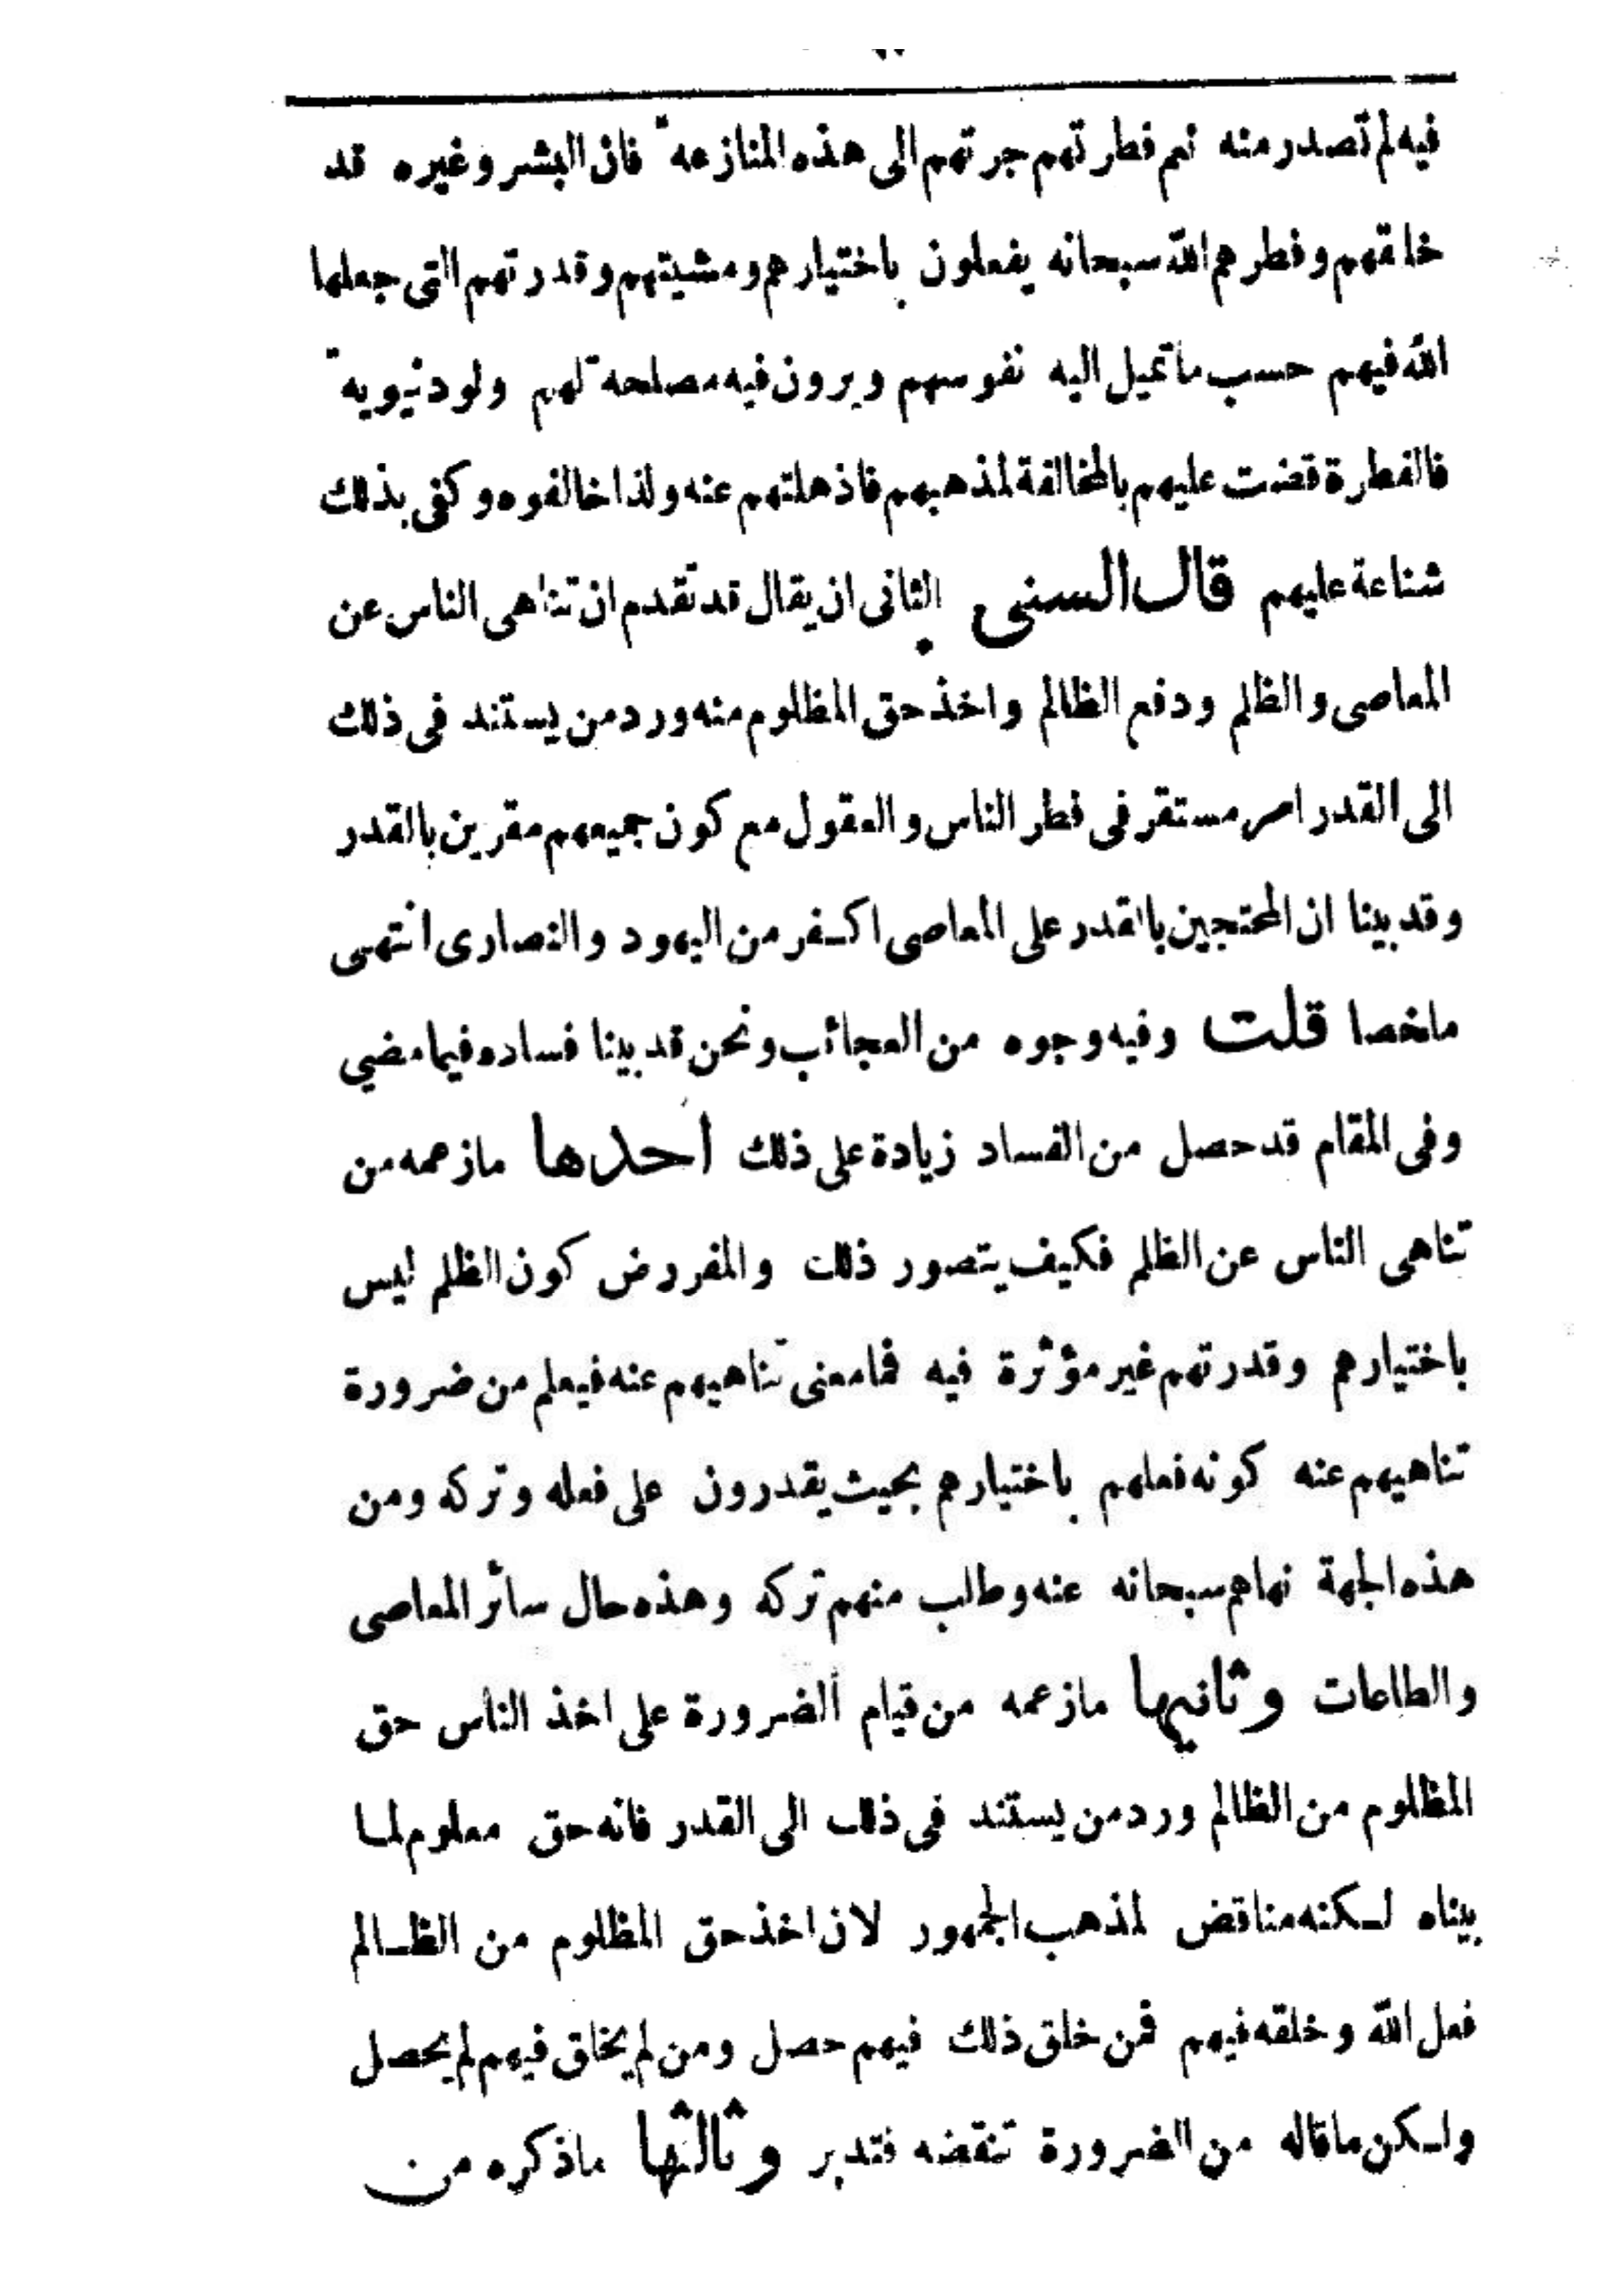 فيه لم تصدر منه نعم فطرتهم جرتهم الى هذه المنازعه فان البشر وغيره قد
خلقهم وفطرهم الله سبحانه يفعلون باختيارهم ومشيتهم وقدرتهم التى جعلها
الله فيهم حسب ما تميل اليه نفوسهم ويرون فيه مصلحه لهم ولو دنيويه
فالفطرة قضت عليهم بالمخالفة لمذهبهم فاذهلتهم عنه ولذا خالفوه وكفى بذلك
شناعة عليهم قال السنى الثانى ان يقال قد تقدم ان تناهى الناس عن
المعاصى والظلم ودفع الظالم واخذ حق المظلوم منه ورد من يستند فى ذلك
الى القدر امر مستقر فى فطر الناس والعقول مع كون جميعهم مقرين بالقدر
وقد بينا ان المحتجين بالقدر على المعاصى اكفر من اليهود والنصارى انتهى
ملخصا قلت وفيه وجوه من العجائب ونحن قد بينا فساده فيما مضى
وفى المقام قد حصل من الفساد زيادة على ذلك احدها ما زعمه من
تناهى الناس عن الظلم فكيف يتصور ذلك والمفروض كون الظلم ليس
باختيارهم وقدرتهم غير مؤثرة فيه فما معنى تناهيهم عنه فيعلم من ضرورة
تناهيهم عنه كونه فعلهم باختيارهم بحيث يقدرون على فعله وتركه ومن
هذه الجهة نهاهم سبحانه عنه وطلب منهم تركه وهذه حال سائر المعاصى
والطاعات وثانيها ما زعمه من قيام الضرورة على اخذ الناس حق
المظلوم من الظالم ورد من يستند فى ذلك الى القدر فانه حق معلوم لما
بيناه لكنه مناقض لمذهب الجمهور لان اخذ حق المظلوم من الظالم
فعل الله وخلقه فيهم فمن خلق ذلك فيهم حصل ومن لم يخلق فيهم لم يحصل
ولكن ما قاله من الضرورة تنقضه فتدبر وثالثها ما ذكره من